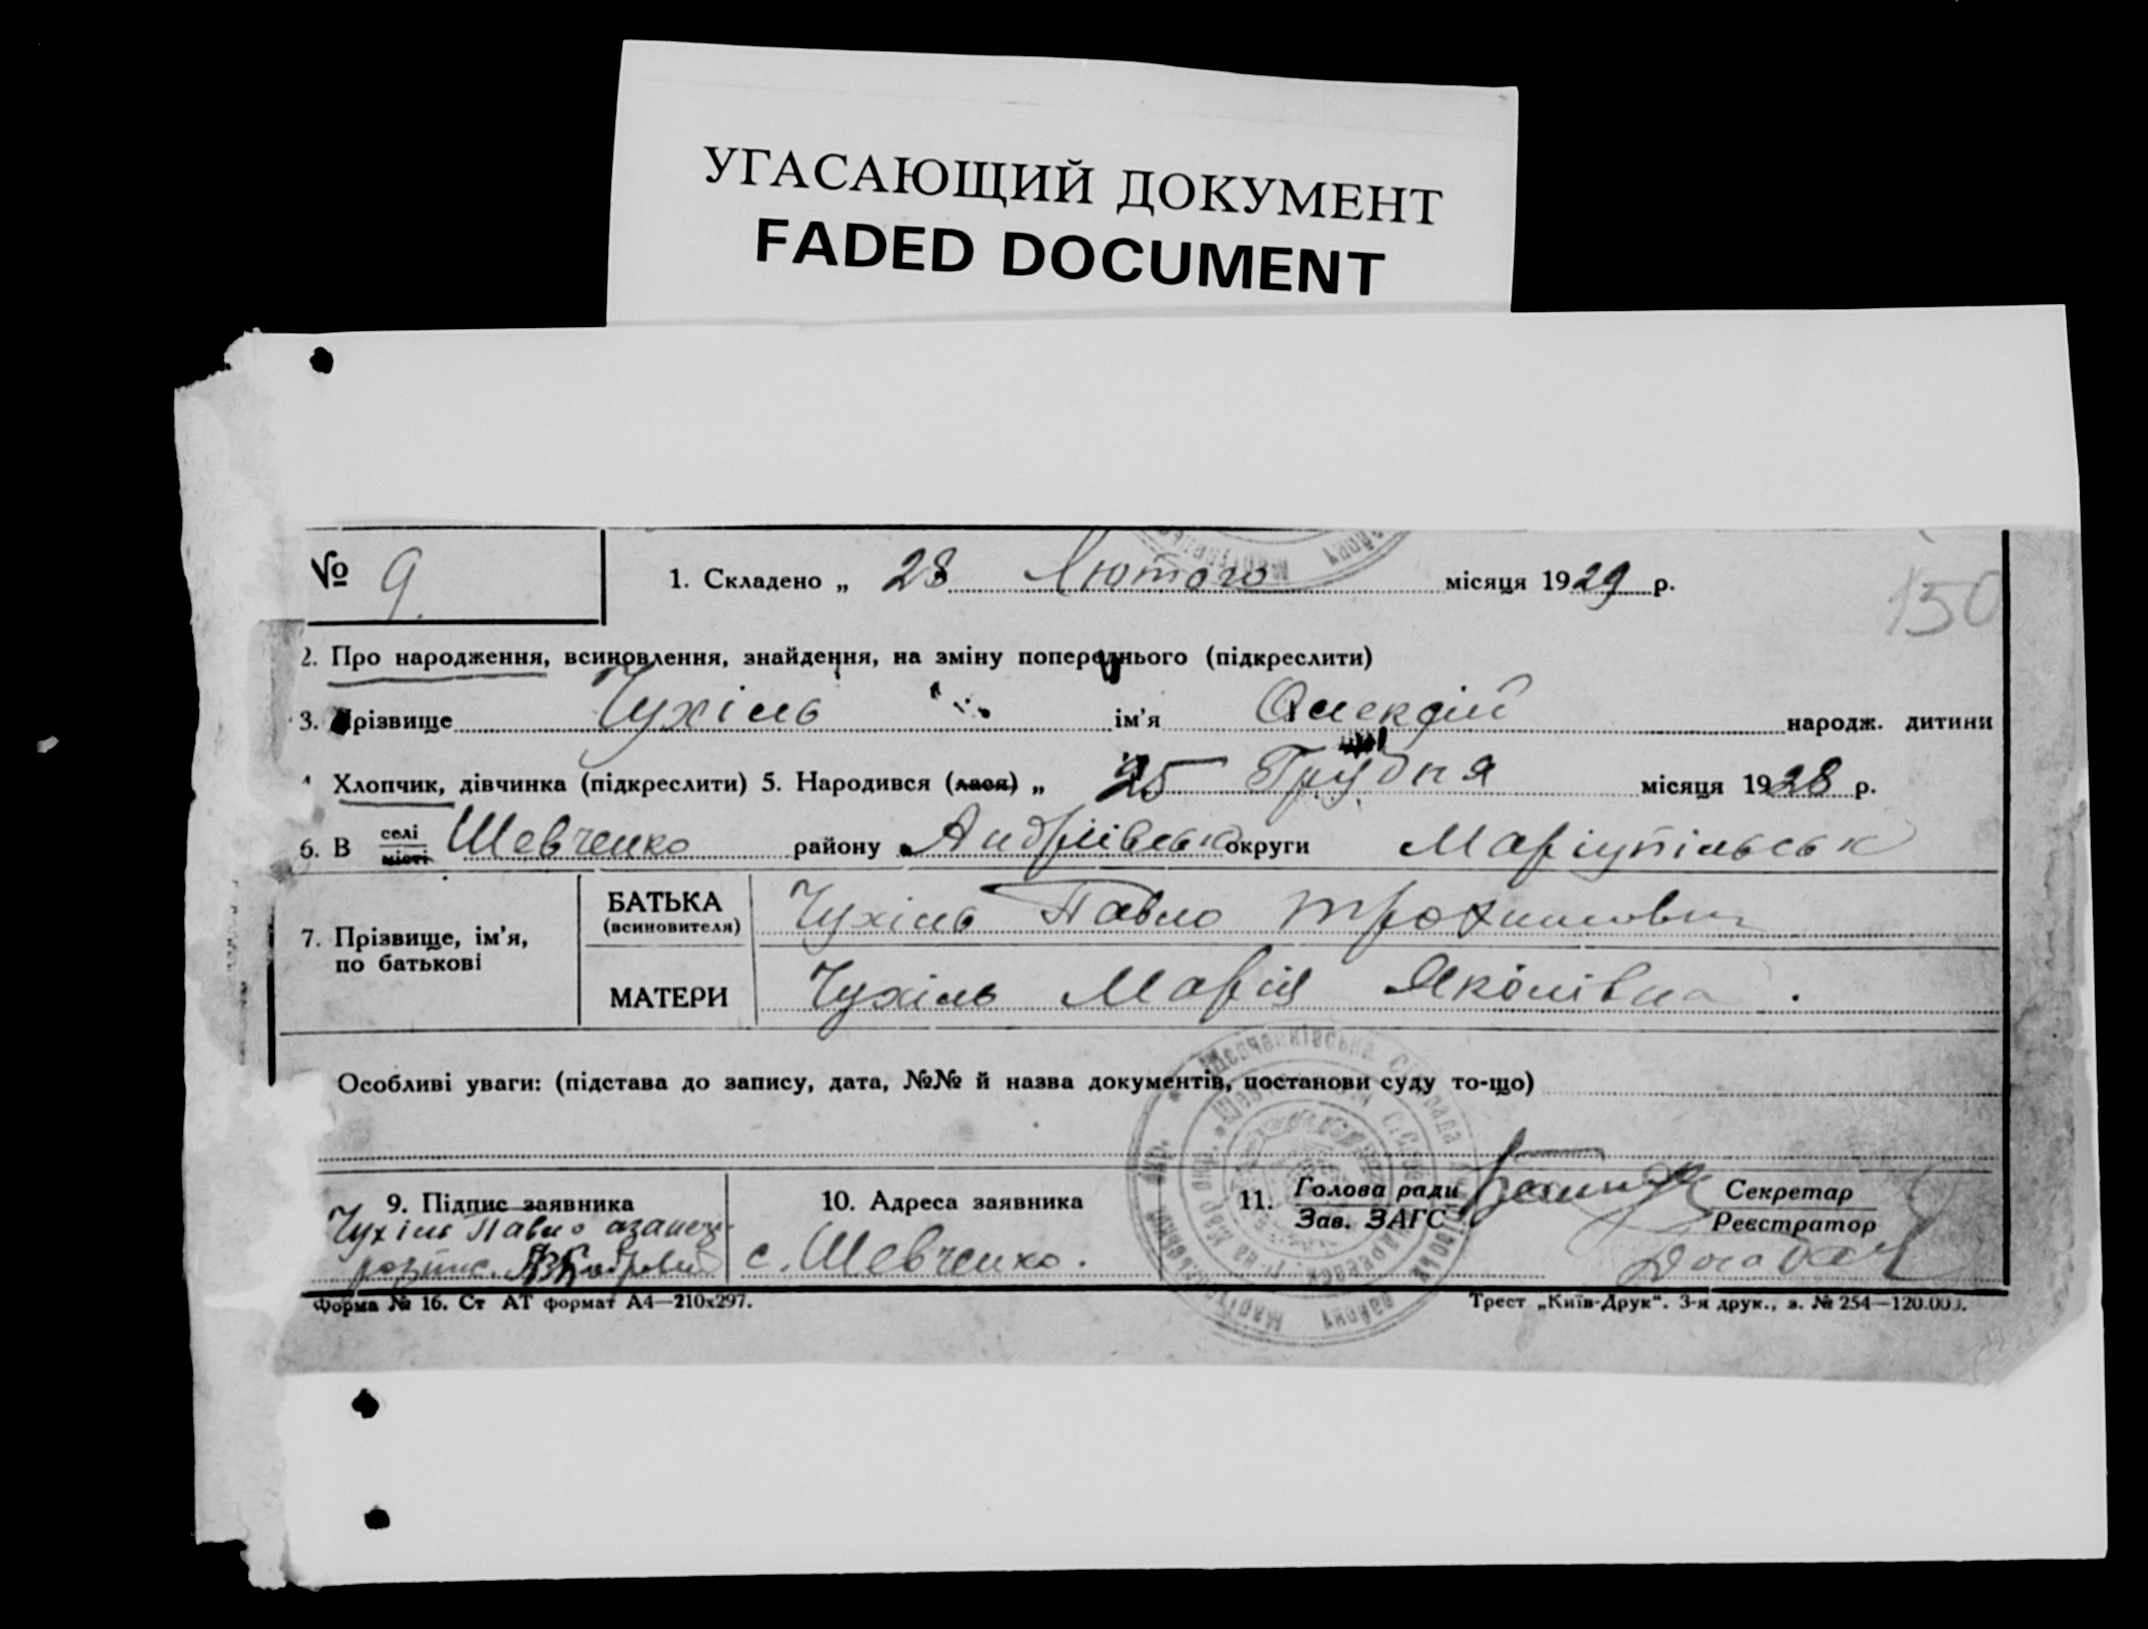 УГАСАЮЩИЙ ДОКУМЕНТ
FADED DOCUMENT
№ 9. 1. Складено „ 28 Лютого місяця 1929 р.
150
2. Про народження, всиновлення, знайдення, на зміну попереднього (підкреслити)
3. Прізвище Чухіль ім'я Олексій народж. дитини
4 Хлопчик, дівчинка (підкреслити) 5. Народився (лася) „ 25 Грудня місяця 1928 р.
6. В селі місті Шевченко району Андріївськ округи Маріупільськ
7. Прізвище, ім'я, по батькові
БАТЬКА (всиновителя) Чухіль Павло Трохимович
МАТЕРИ Чухіль Марія Яковівна.
Особливі уваги: (підстава до запису, дата, №№ й назва документів, постанови суду то-що)
9. Підпис заявника 10. Адреса заявника 11. Голова ради Зав. ЗАГС Секретар Реєстратор
Чухіль Павло
с. Шевченко.
Форма № 16. Ст АТ формат А4—210х297. Трест „Київ-Друк“. 3-я друк., з. № 254—120.000.